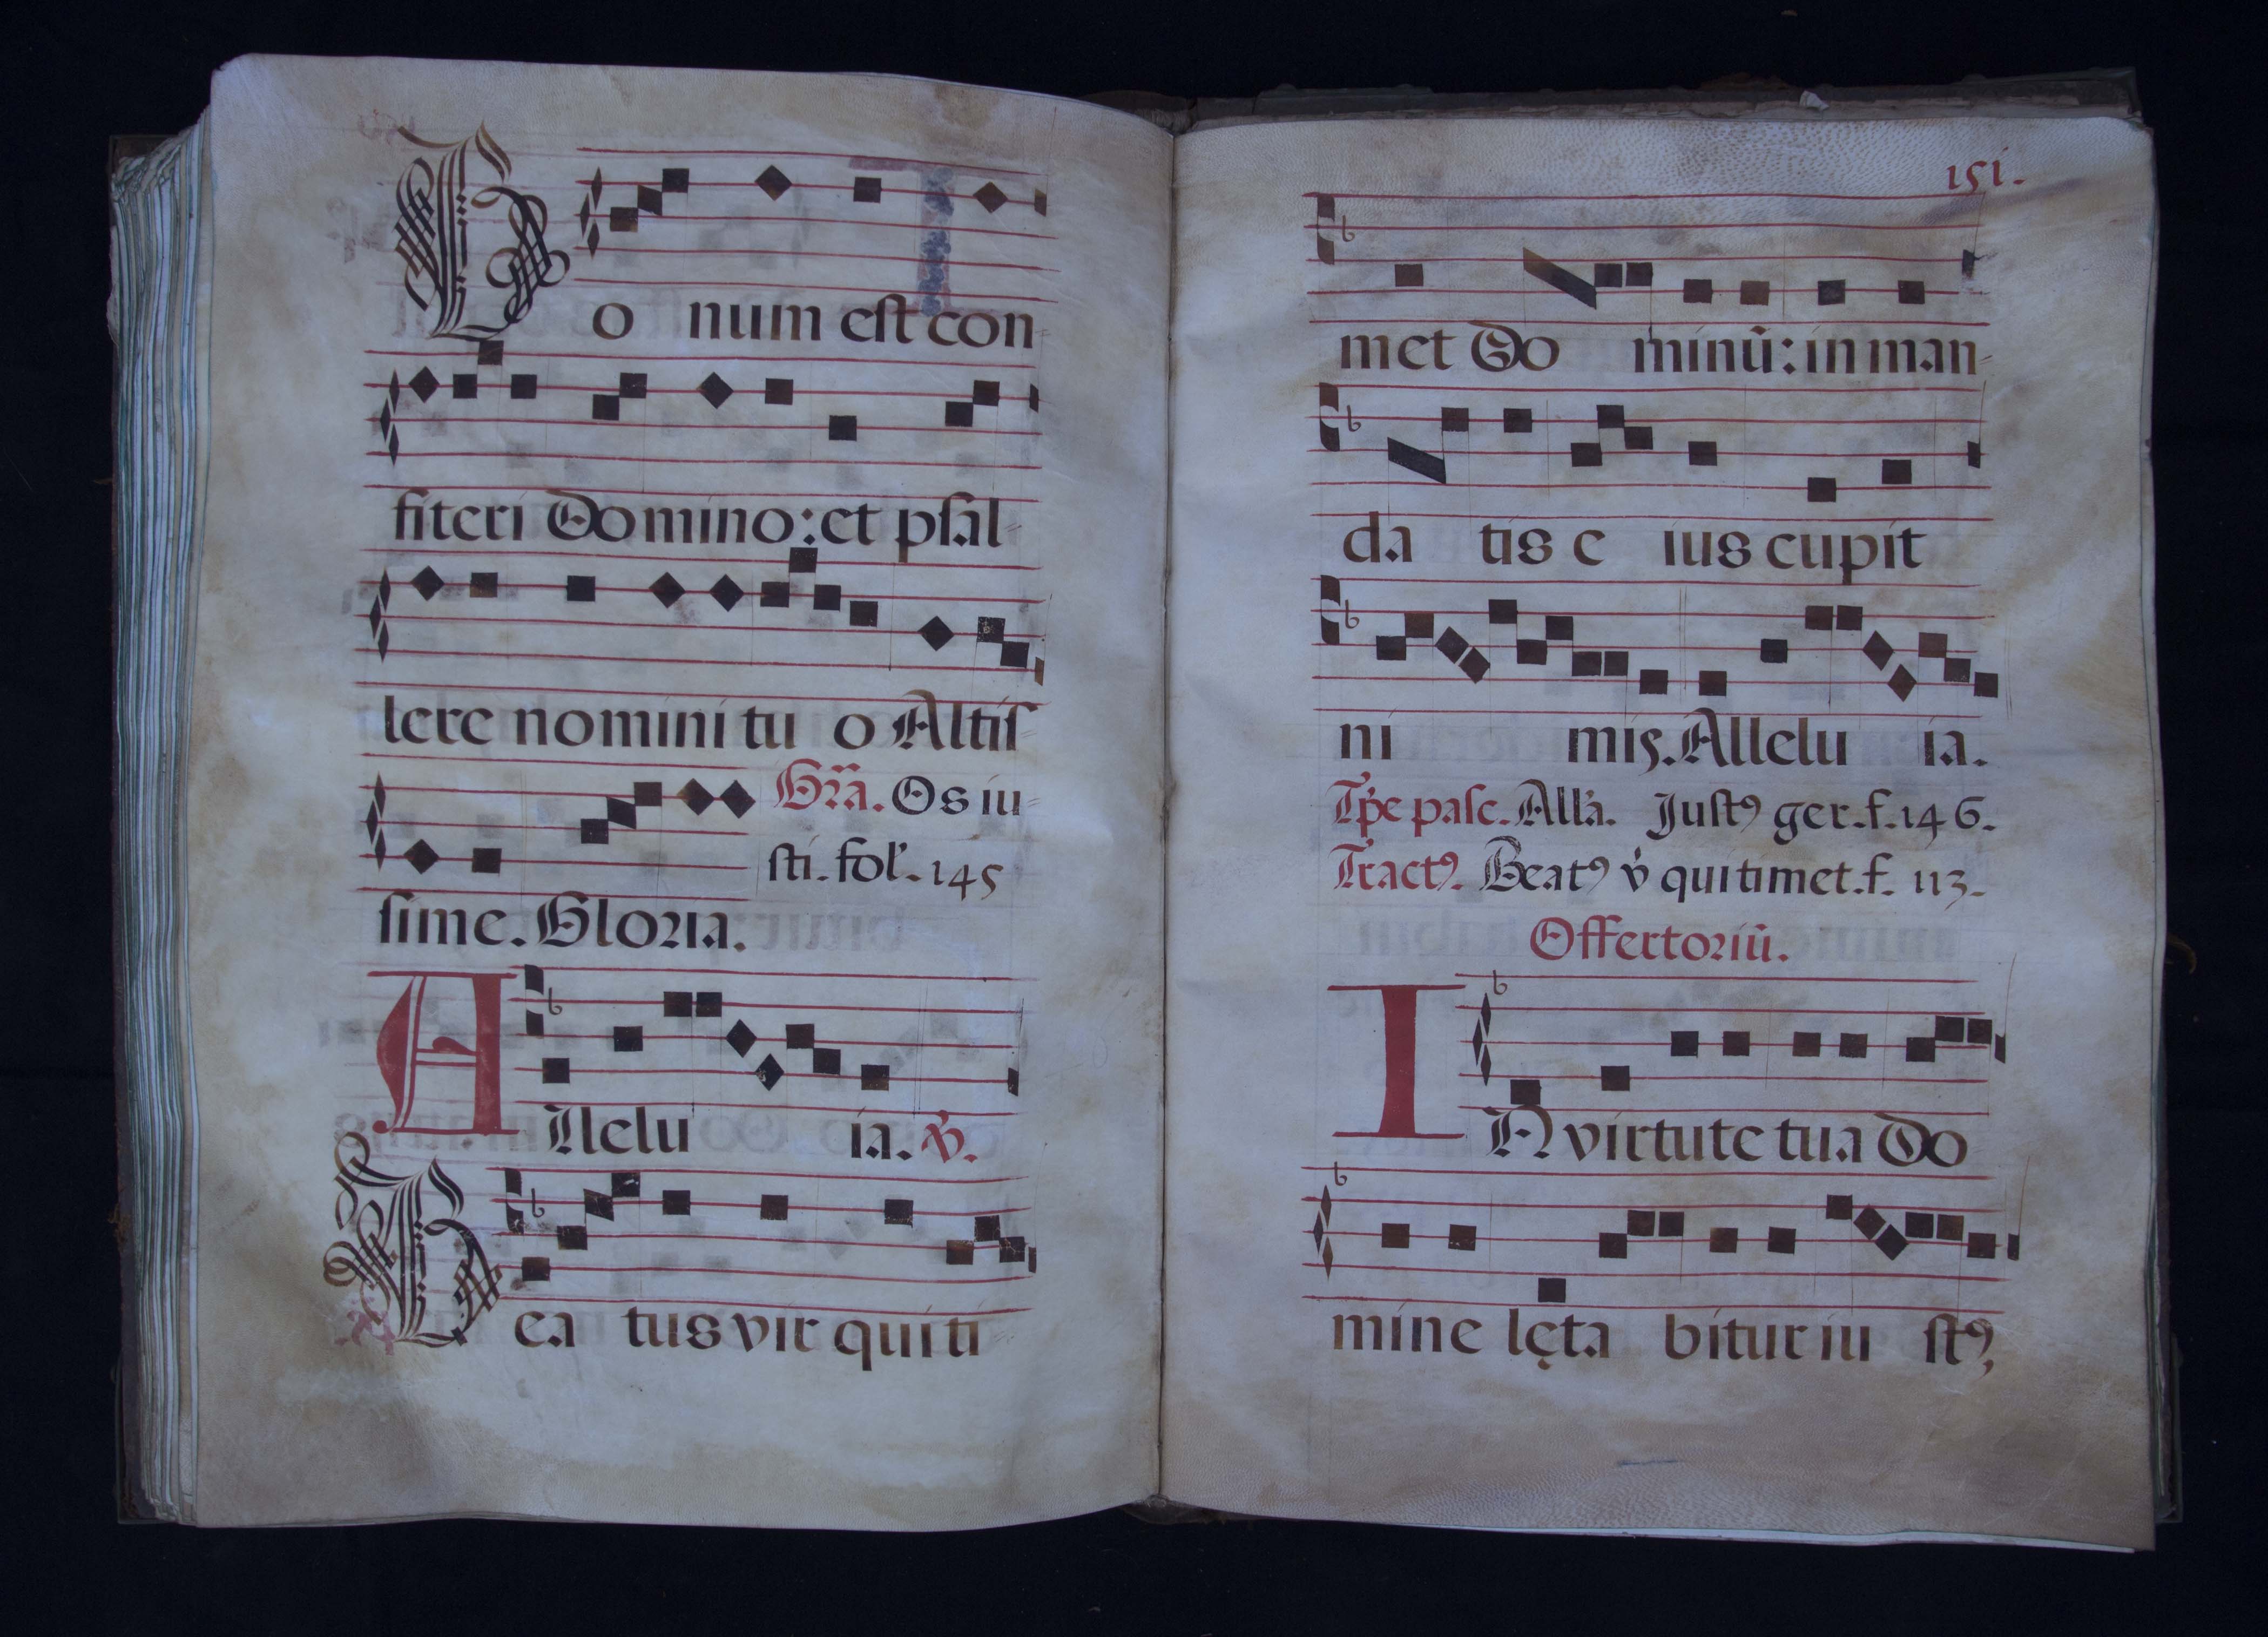 Bo num est con
fiteri Domino: et psal
lere nomini tu o Altis
Gra. Os iu
sti. fol. 145
sime. Gloria.
Allelu ia. ℣.
Bea tus vir qui ti
151.
met Do minū: in man
da tis e ius cupit
ni mis. Allelu ia.
Tpe pasc. Alla. Justꝰ ger. f. 146.
Tractꝰ. Beatꝰ v qui timet. f. 113.
Offertoriū.
IN virtute tua Do
mine lęta bitur iu stꝰ,